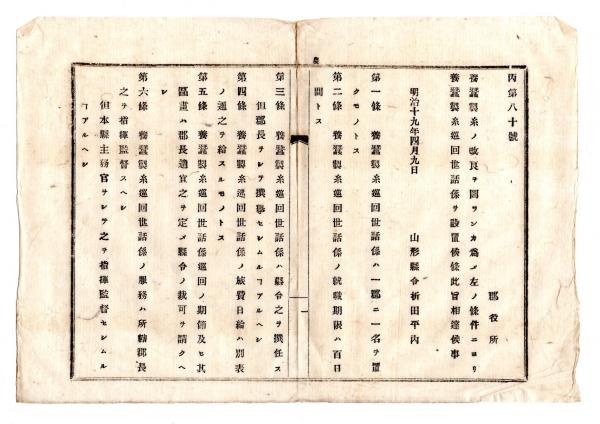 丙第八十號
郡役所
養蠶製糸ノ改良ヲ圖ランカ爲メ左ノ條件ニヨリ
養蠶製糸巡回世話係ヲ設置候條此旨相達候事
明治十九年四月九日
山形縣令折田平内
第一條 養蠶製糸巡回世話係ハ一郡ニ一名ヲ置
クモノトス
第二條 養蠶製糸巡回世話係ノ就職期限ハ百日
間トス
第三條 養蠶製糸巡回世話係ハ縣令之ヲ撰任ス
但郡長ヲシテ撰擧セシムルヿアルヘシ
第四條 養蠶製糸巡回世話係ノ旅費日給ハ別表
ノ通之ヲ給スルモノトス
第五條 養蠶製糸巡回世話係巡回ノ期節及ヒ其
區畫ハ郡長適宜之ヲ定メ縣令ノ裁可ヲ請クヘ
シ
第六條 養蠶製糸巡回世話係ノ服務ハ所轄郡長
之ヲ指揮監督スヘシ
但本縣主務官ヲシテ之ヲ指揮監督セシムル
ヿアルヘシ
一